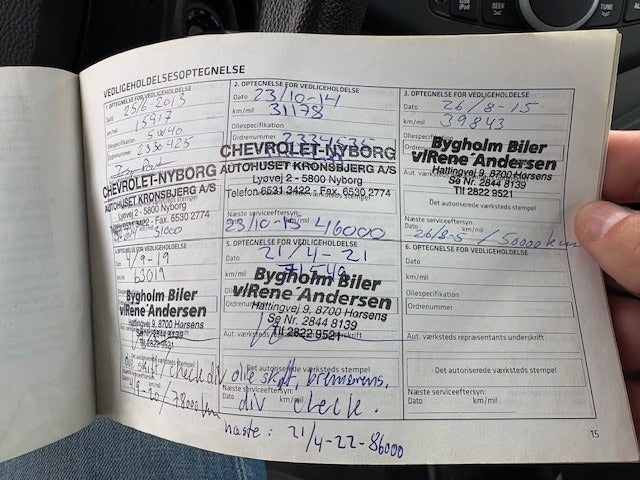 USB iPod
SEEK
TUNE
VEDLIGEHOLDELSESOPTEGNELSE
1. OPTEGNELSE FOR VEDLIGEHOLDELSE
Dato 25/6 2013
km/mil 15917
Oliespecifikation 5W40
Ordrenummer 2330425
CHEVROLET-NYBORG
AUTOHUSET KRONSBJERG A/S
Lyøvej 2 - 5800 Nyborg
6531 3422 - Fax. 6530 2774
31000
2. OPTEGNELSE FOR VEDLIGEHOLDELSE
Dato 23/10-14
km/mil 31178
Oliespecifikation
Ordrenummer
CHEVROLET-NYBORG
AUTOHUSET KRONSBJERG A/S
Lyøvej 2 - 5800 Nyborg
Telefon 6531 3422 - Fax. 6530 2774
Næste serviceeftersyn:
23/10-15 46000
3. OPTEGNELSE FOR VEDLIGEHOLDELSE
Dato 26/8-15
km/mil 39843
Oliespecifikation
Ordrenummer
Bygholm Biler
v/Rene Andersen
Hattingvej 9, 8700 Horsens
Se Nr. 2844 8139
Tlf 2822 9521
Det autoriserede værksteds stempel
Næste serviceeftersyn:
/ 50000 km
4/9-19
km/mil 63019
Bygholm Biler
v/Rene Andersen
Hattingvej 9, 8700 Horsens
Se Nr. 2844 8139
Tlf 2822 9521
olie skift/check div
/78000 km
5. OPTEGNELSE FOR VEDLIGEHOLDELSE
Dato 21/4-21
km/mil 71549
Bygholm Biler
v/Rene Andersen
Hattingvej 9, 8700 Horsens
Se Nr. 2844 8139
Tlf 2822 9521
Aut. værksteds repræsentants underskrift
Det autoriserede værksteds stempel
olie skift, bremserens,
Næste serviceeftersyn:
Dato km/mil
div check.
næste: 21/4-22-86000
6. OPTEGNELSE FOR VEDLIGEHOLDELSE
Dato
km/mil
Oliespecifikation
Ordrenummer
Aut. værksteds repræsentants underskrift
Det autoriserede værksteds stempel
Næste serviceeftersyn:
Dato km/mil
15